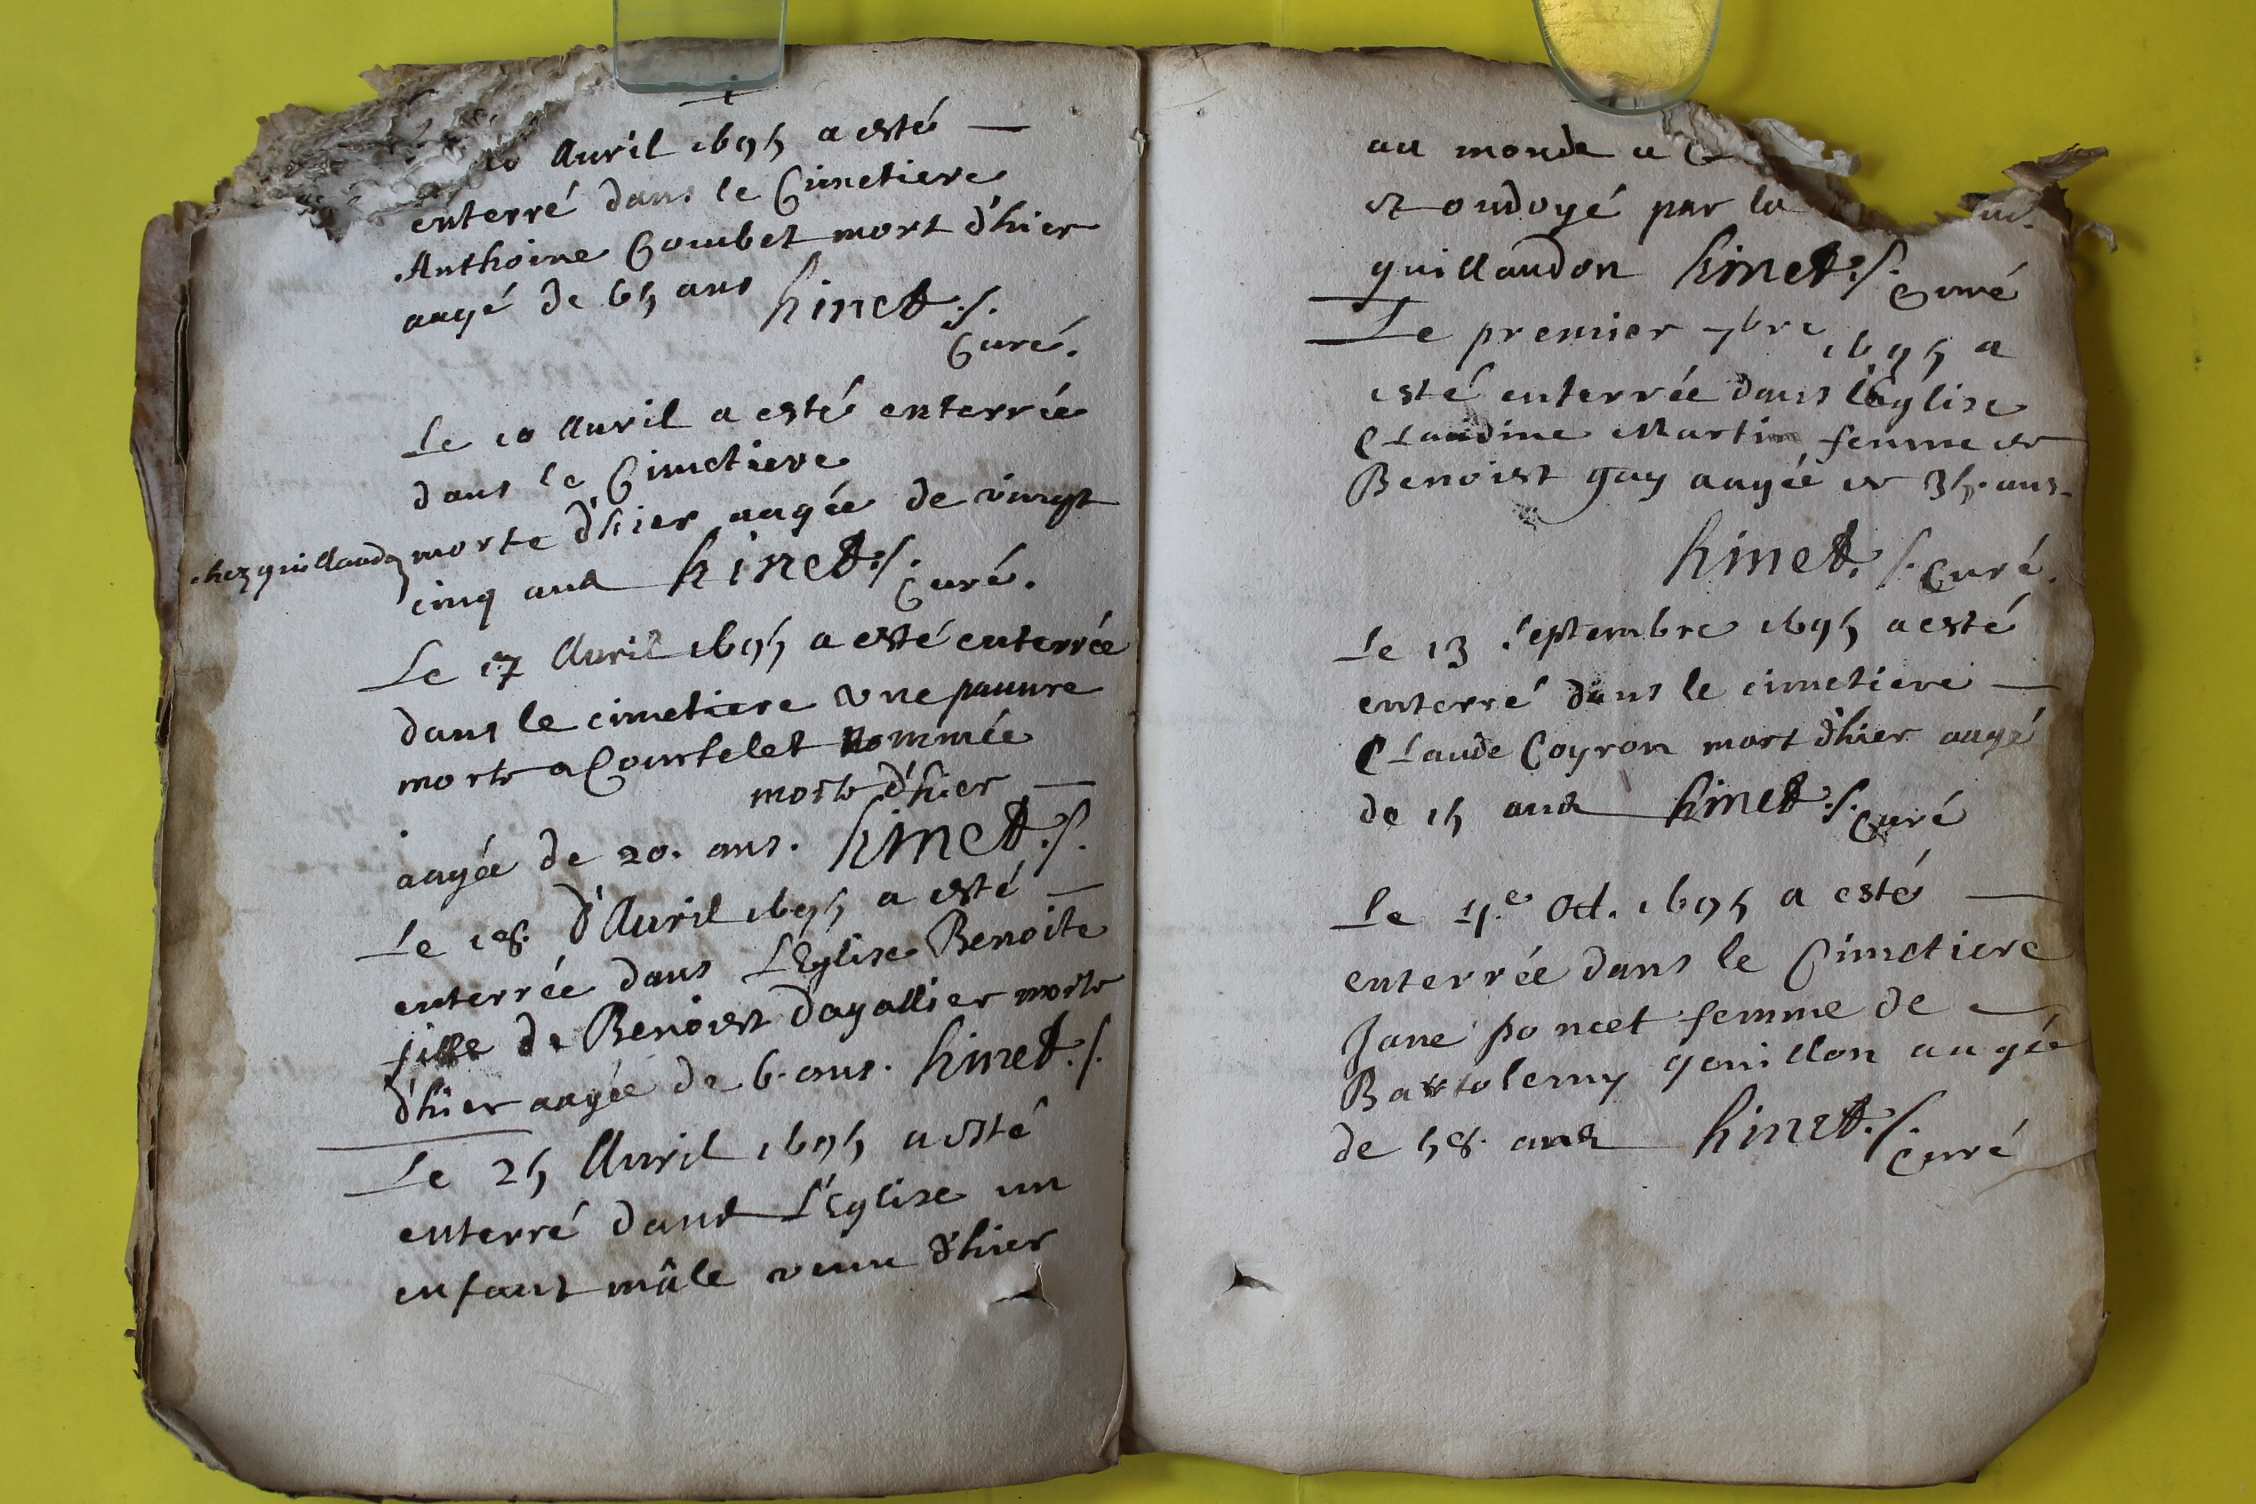 10 Auril 1695 a esté
enterré dans le Cimetiere
Anthoine Combet mort d'hier
aagé de 65 ans hinet
Curé.
Le 10 Auril a esté enterrée
dans le Cimetiere
morte d'hier aagée de vingt
chez guillaudon
cinq ans hinet Curé.
Le 17 Auril 1695 a esté enterrée
dans le cimetiere une pauure
morte a Courtelet nommée
morte d'hier
aagée de 20. ans. hinet
Le 18. d'Auril 1695 a esté
enterrée dans L'Eglise Benoite
fille de Benoist dagallier morte
d'hier aagée de 6. ans. hinet
Le 25 Auril 1695 a esté
enterré dans L'Eglise un
enfant mâle venu d'hier
au monde a
et ondoyé par la
guillaudon hinet Curé
Le premier 7bre 1695 a
esté enterrée dans l'Eglise
Claudine Martin femme de
Benoist gay aagée de 35. ans
hinet. Curé.
Le 13 septembre 1695 a esté
enterré dans le cimetiere
Claude Coyron mort d'hier aagé
de 15 ans hinet Curé
Le 4.e Oct. 1695 a esté
enterrée dans le Cimetiere
Jane poncet femme de
Bartolemy gouillon aagée
de 58. ans hinet. Curé